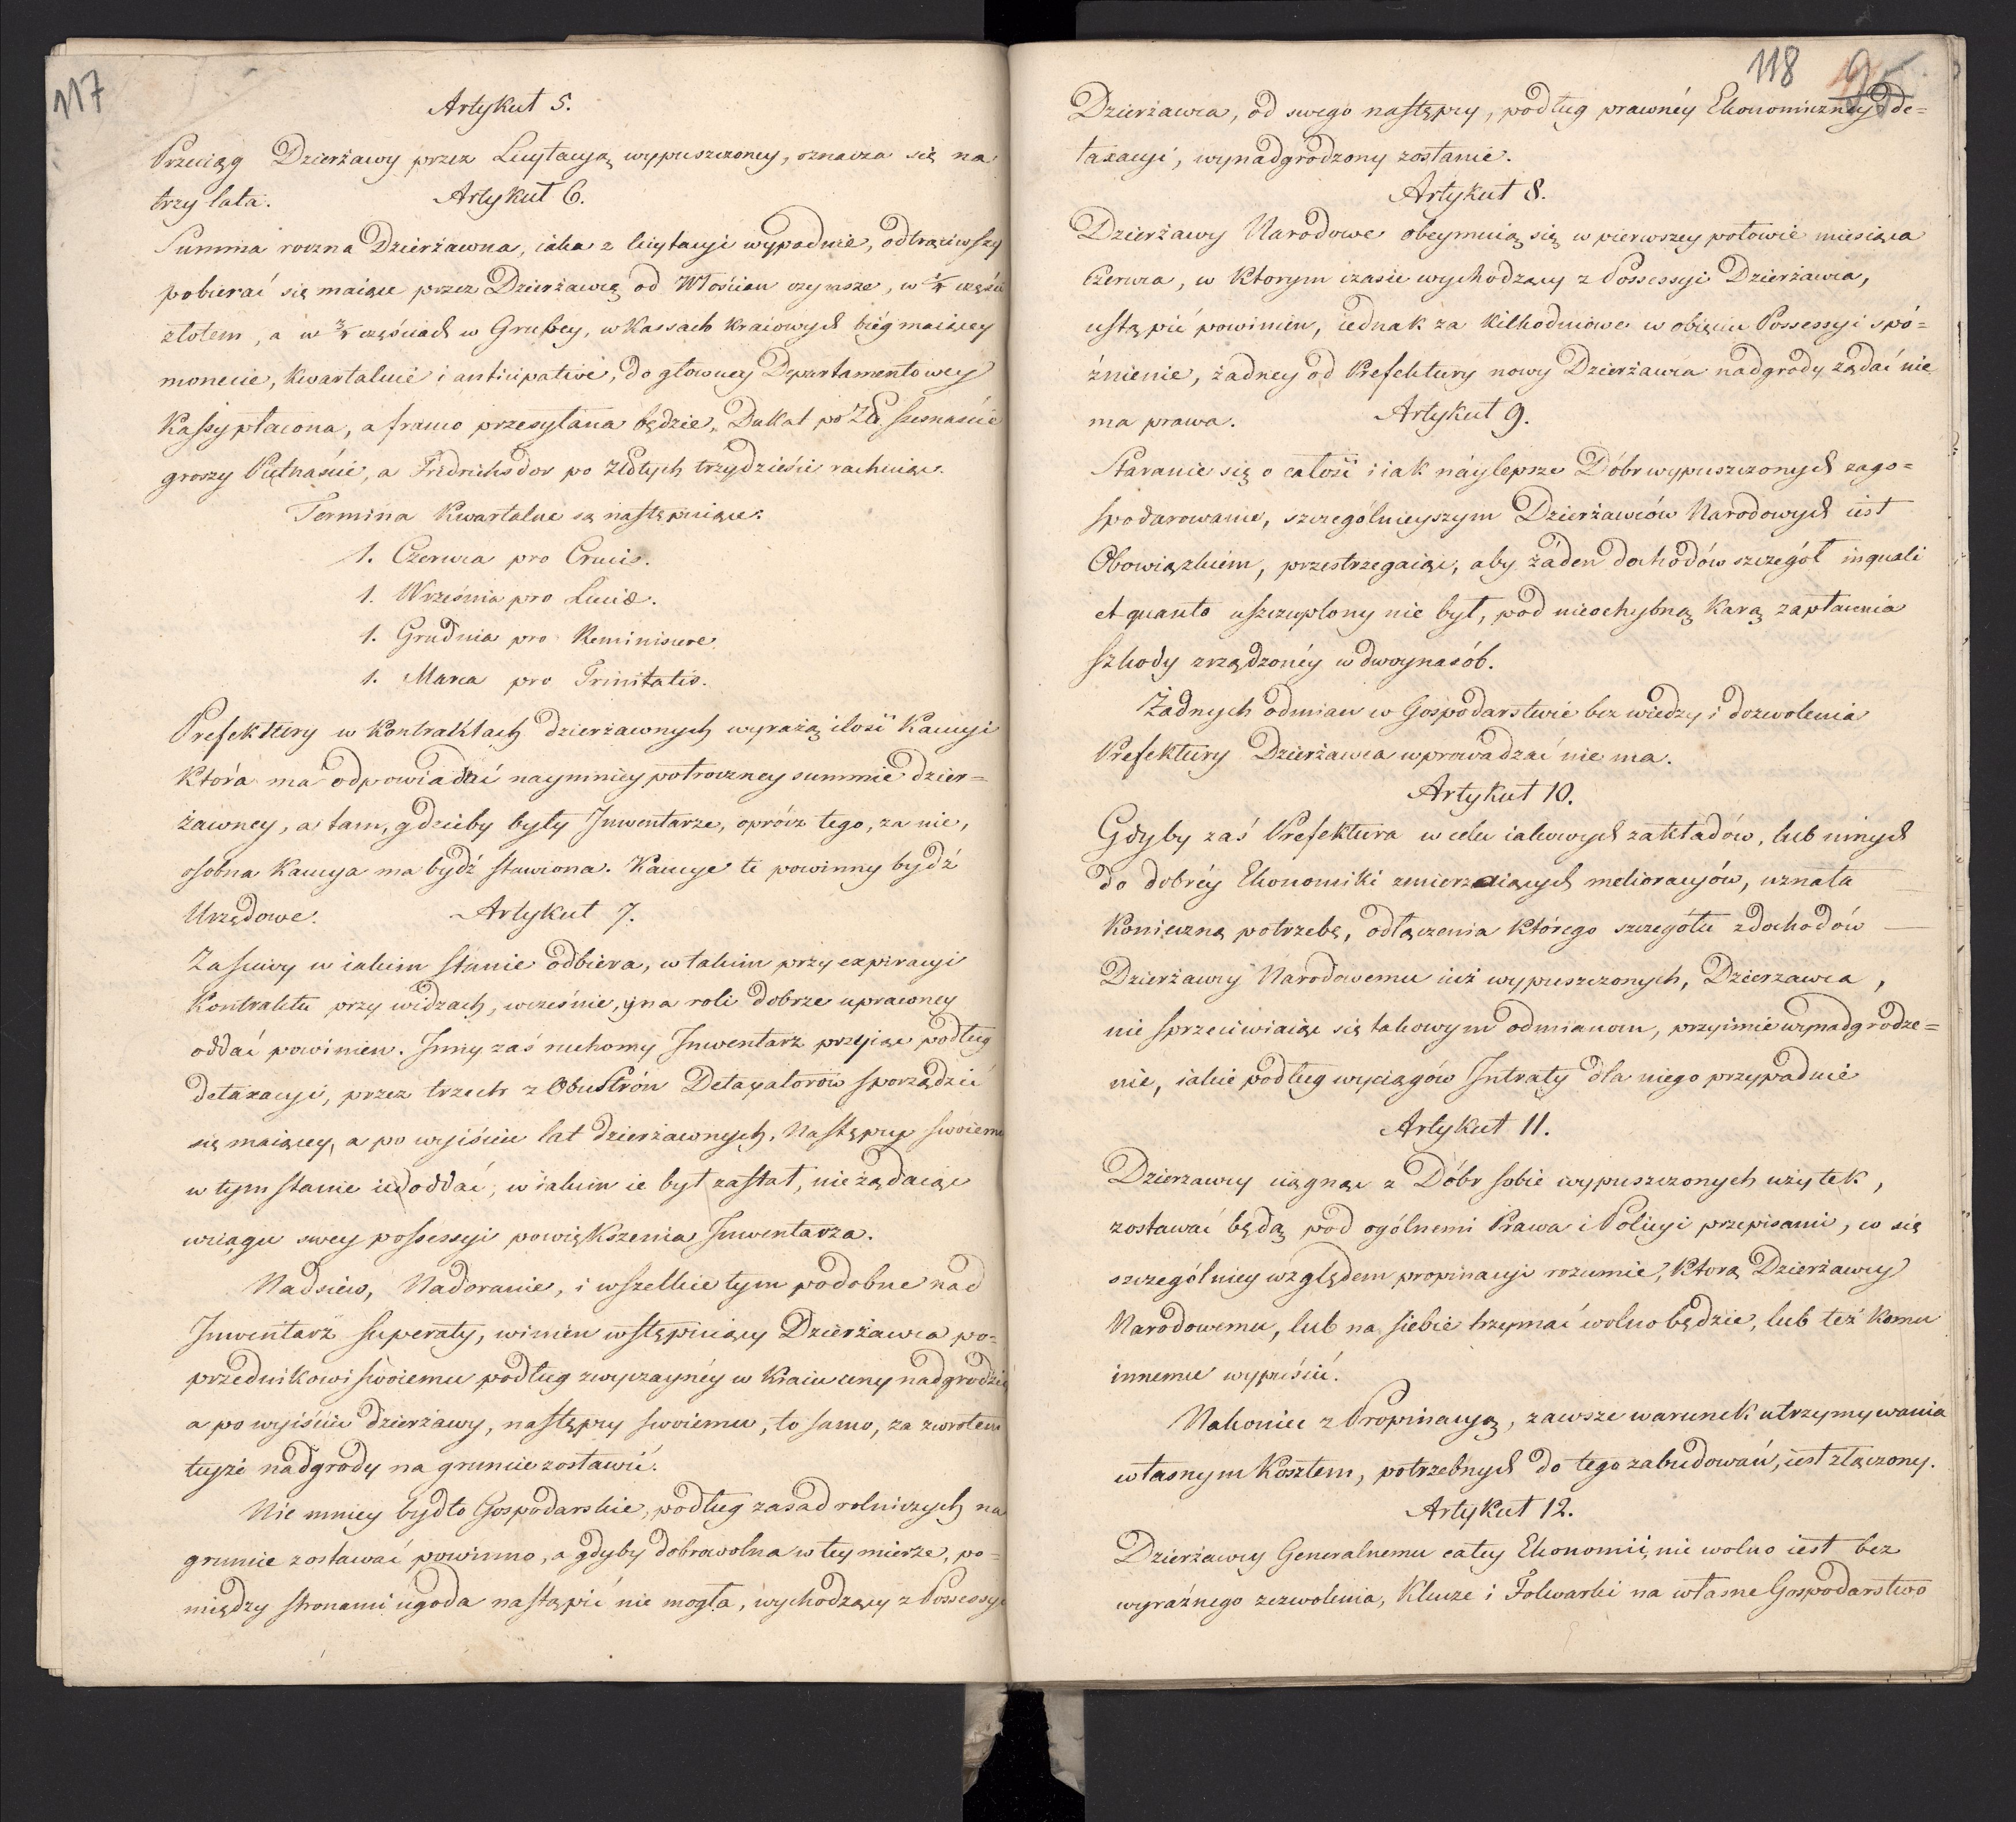 117
Artykuł 5.
Przeciąg Dzierżawy przez Licytacyą wypuszczoney, oznacza się na
trzy lata.
Artykuł 6.
Summa roczna Dzierżawna, iaka z licytacyi wypadnie, odtrąciwszy
pobierać się maiące przez Dzierżawcę od Włościan czynsze, w ¼ części
złotem, a w ¾ częściach w Grubey, w Kassach kraiowych bieg maiącey
monecie, kwartalnie i anticipative, do głowney Departamentowey
Kassy płacona, a franco przesyłana będzie, Dukat po Zł: szesnaście
groszy Piętnaście, a Fridrichsdor po złotych trzydzieści rachuiąc.
Termina Kwartalne są następuiące:
1. Czerwca pro Crucis.
1. Września pro Luciæ.
1. Grudnia pro Reminiscere.
1. Marca pro Trinitatis.
Prefektury w Kontraktach dzierżawnych wyrażą ilość Kaucyi
Która ma odpowiadać naymniey połroczney summie dzier=
żawney, a tam, gdzieby były Inwentarze, oprócz tego, za nie,
osobna Kaucya ma bydź stawiona. Kaucye te powinny bydź
Urzędowe.
Artykuł 7.
Zasiewy w iakim stanie odbiera, w takim przy expiracyi
Kontraktu przy widzach, wcześnie, y na roli dobrze uprawney
oddać powinien. Inny zaś ruchomy Inwentarz przyiąć podług
detaxacyi, przez trzech z Obustrón Detaxatorów sporządzić
się maiącey, a po wyiściu lat dzierżawnych, Następcy swoiemu
w tym stanie ied oddać, w iakim ie był zastał, nie żądaiąc
wciągu swey possessyi powiększenia Inwentarza.
Nadsiew, Nadoranie, i wszelkie tym podobne nad
Inwentarz superaty, winien wstępuiący Dzierżawca po=
przednikowi swoiemu podług zwyczaynéy w Kraiu ceny nadgrodzić
a po wyiściu dzierżawy, następcy swoiemu, to samo, za zwrotem
teyże nadgrody na gruncie zostawić.
Nie mniey bydło Gospodarskie, podług zasad rolniczych na
gruncie zostawać powinno, a gdyby dobrowolna w tey mierze, po=
między stronami ugoda nastąpić nie mogła, wychodzący z Possessyi
118
Dzierżawca, od swego następcy, podług prawnéy Ekonomiczney de=
taxacyi, wynadgrodzony zostanie.
Artykuł 8.
Dzierżawy Narodowe obeymuią się w pierwszey połowie miesiąca
Czerwca, w ktorym czasie wychodzący z Possessyi Dzierżawca,
ustąpić powinien, iednak za kilkodniowe w obięciu Possessyi spó=
źnienie, żadney od Prefektury nowy Dzierżawca nadgrody żądać nie
ma prawa.
Artykuł 9.
Staranie się o całość i iak náylepsze Dóbr wypuszczonych zago=
spodarowanie, szczególnieyszym Dzierżawców Narodowych iest
Obowiązkiem, przestrzegaiąc, aby żáden dochodów szczegół in quali
et quanto uszczuplony nie był, pod nieochybną karą zapłacenia
szkody zrządzonéy w dwoynasób.
Żadnych odmian w Gospodarstwie bez wiedzy i dozwolenia
Prefektury Dzierżawca wprowadzać nie ma.
Artykuł 10.
Gdyby zaś Prefektura w celu iakowych zakładów, lub innych
do dobréy Ekonomiki zmierzaiących melioracyów, uznała
Konieczną potrzebę, odłączenia którego szczegółu z dochodów
Dzierżawcy Narodowemu iuż wypuszczonych, Dzierżawca,
nie sprzeciwiaiąc się takowym odmianom, przyimie wynadgrodze=
nie, iakie podług wyciągów Intraty dla niego przypadnie
Artykuł 11.
Dzierżawcy ciągnąc z Dóbr sobie wypuszczonych użytek,
zostawać będą pod ogólnemi Prawa i Policyi przepisami, co się
szczególniey względem propinacyi rozumie, którą Dzierżawcy
Narodowemu, lub na siebie trzymać wolno będzie, lub też komu
innemu wypuścić.
Nakoniec z Propinacyą, zawsze warunek utrzymywania
własnym kosztem, potrzebnych do tego zabudowań, iest złączony.
Artykuł 12.
Dzierżawcy Generalnemu całey Ekonomii, nie wolno iest bez
wyraźnego zezwolenia, Klucze i Folwarki na własne Gospodarstwo